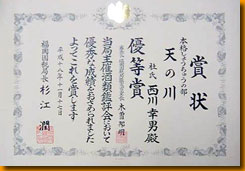 賞状
本格しょうちゅうの部
天の川
杜氏 西川幸男殿
優等賞
当局主催酒類鑑評会において
優秀な成績をおさめられました
よってこれを賞します
平成十八年十一月十七日
福岡国税局長 杉江 潤